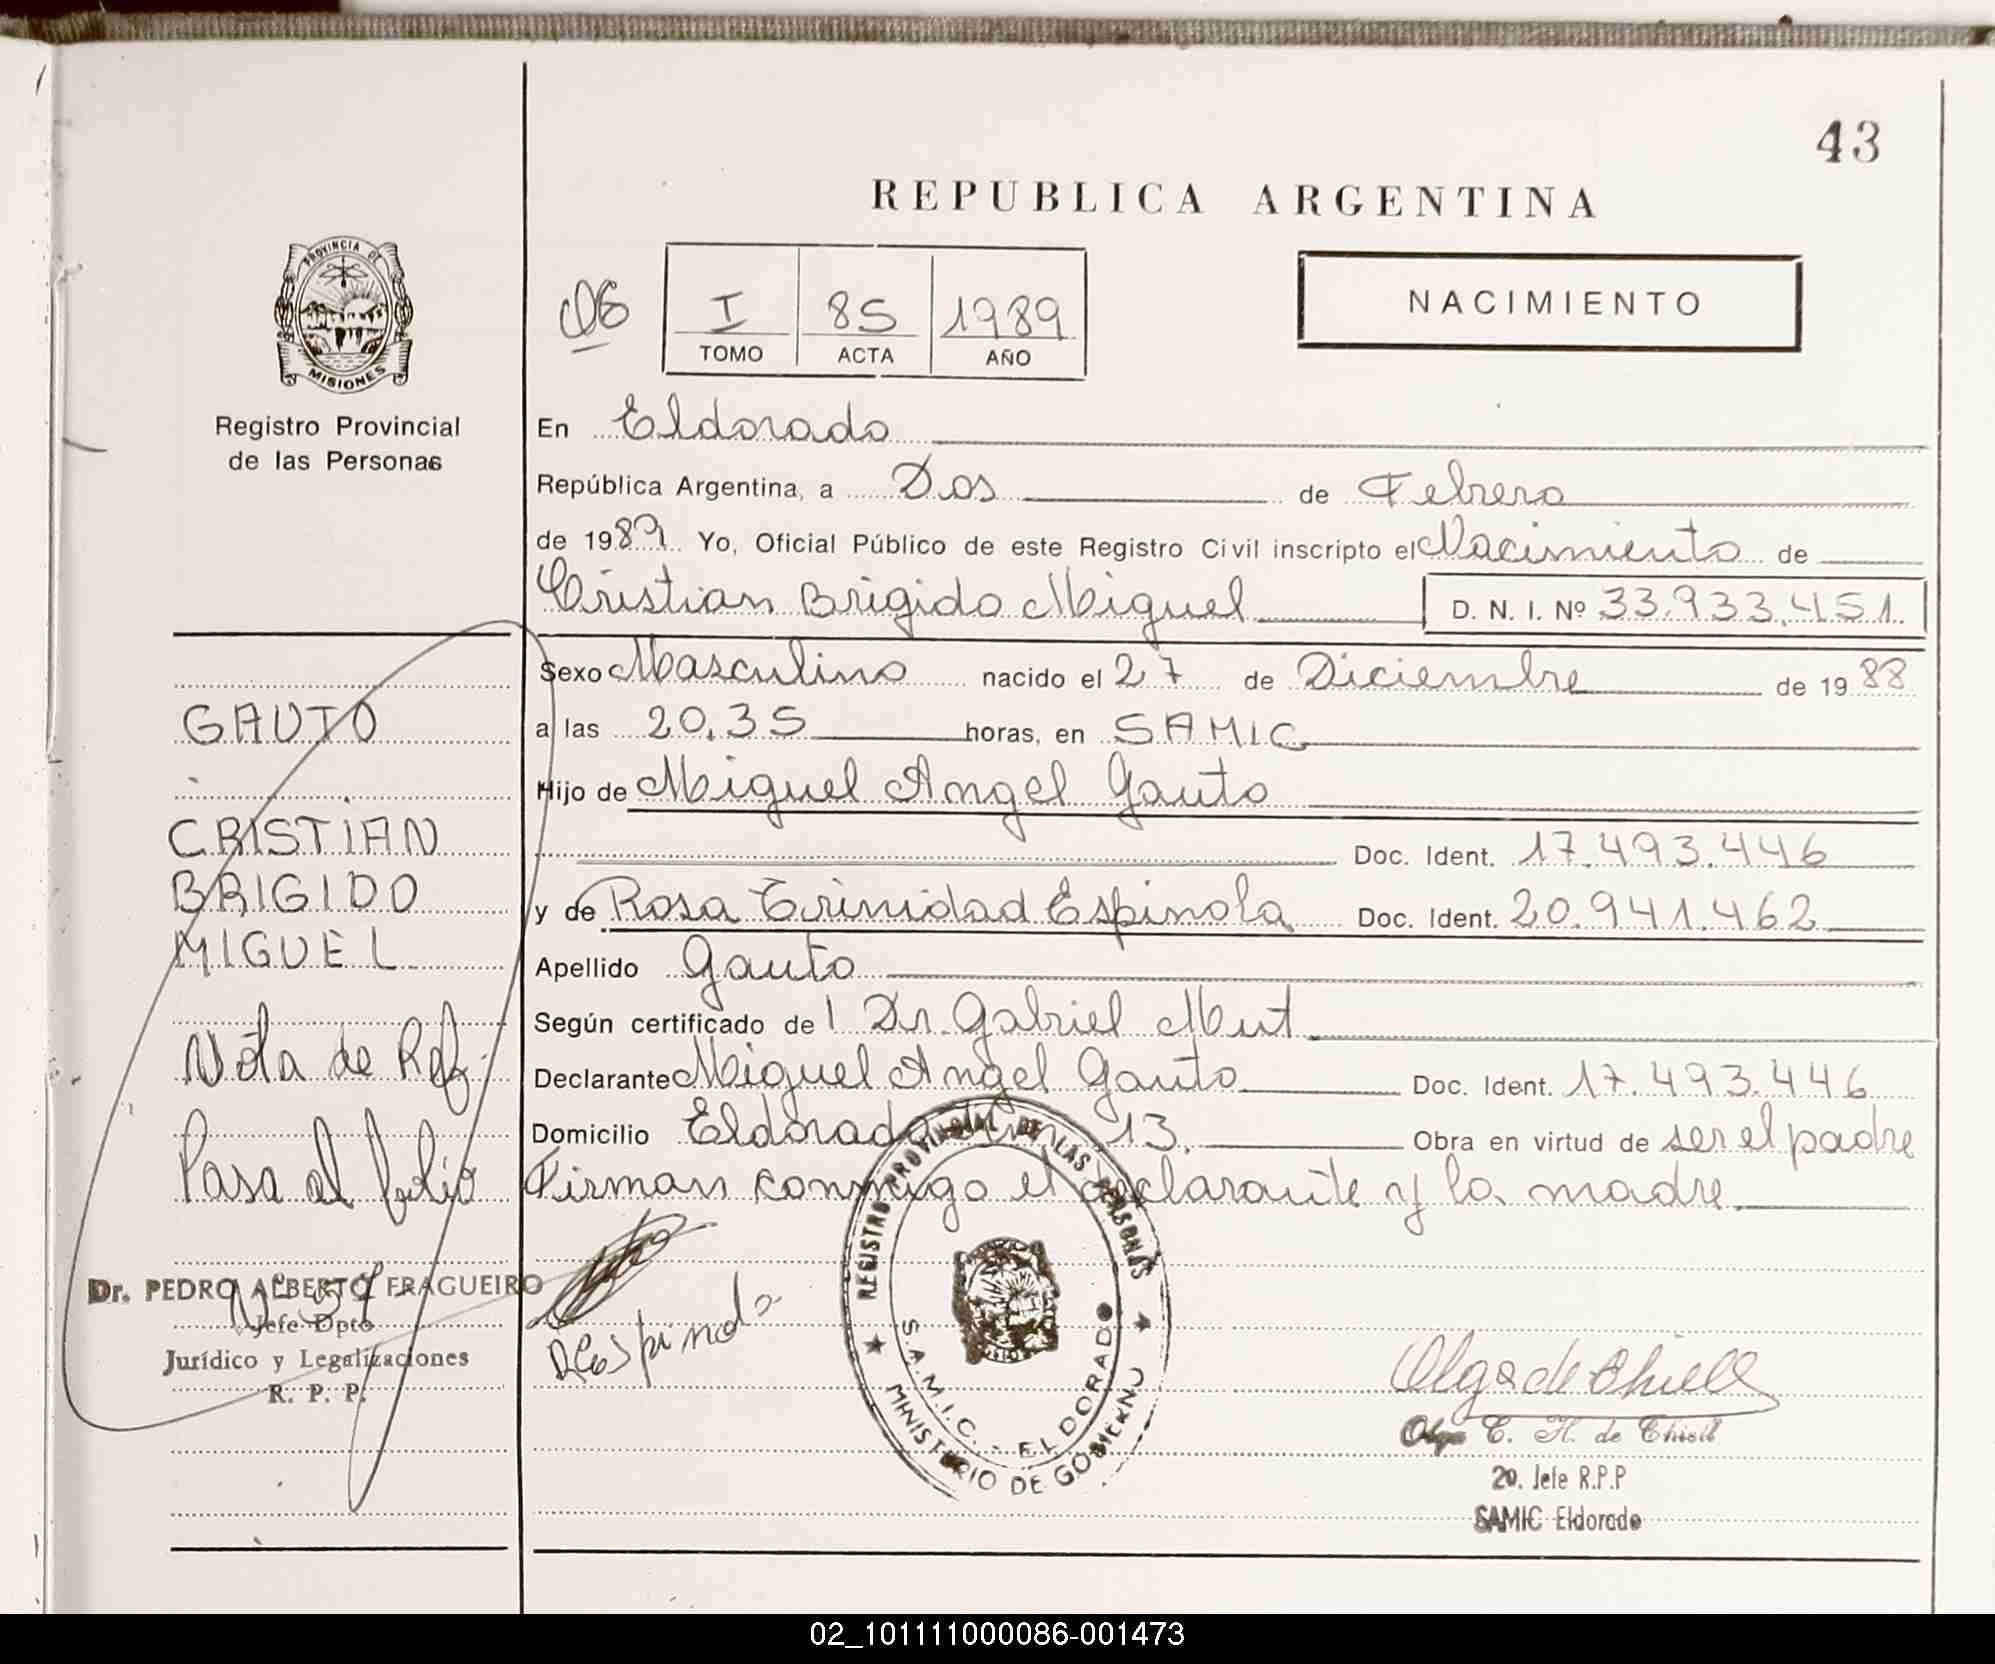 43
REPUBLICA ARGENTINA
PROVINCIA DE
MISIONES
Registro Provincial
de las Personas
06
I 85 1989
TOMO ACTA AÑO
NACIMIENTO
En Eldorado
República Argentina, a Dos de Febrero
de 1989 Yo, Oficial Público de este Registro Civil inscripto el Nacimiento de
Cristian Brigido Miguel D. N. I. Nº 33.933.451.
Sexo Masculino nacido el 27 de Diciembre de 1988
a las 20.35 horas, en SAMIC
Hijo de Miguel Angel Gauto
Doc. Ident. 17.493.446
y de Rosa Trinidad Espinola Doc. Ident. 20.941.462
Apellido Gauto
Según certificado de l Dr. Gabriel Mut
Declarante Miguel Angel Gauto Doc. Ident. 17.493.446
Domicilio Eldorado 13. Obra en virtud de ser el padre
Firman conmigo el declarante y la madre
GAUTO
CRISTIAN
BRIGIDO
MIGUEL
Nota de Ref.
Pasa al folio
Dr. PEDRO ALBERTO FRAGUEIRO
Jefe Dpto
Jurídico y Legalizaciones
R. P. P.
REGISTRO PROVINCIAL DE LAS PERSONAS
S.A.M.I.C. - ELDORADO
MINISTERIO DE GOBIERNO
Olga de Thiell
Olga E. H. de Thiell
2o. Jefe R.P.P
SAMIC Eldorado
02_101111000086-001473